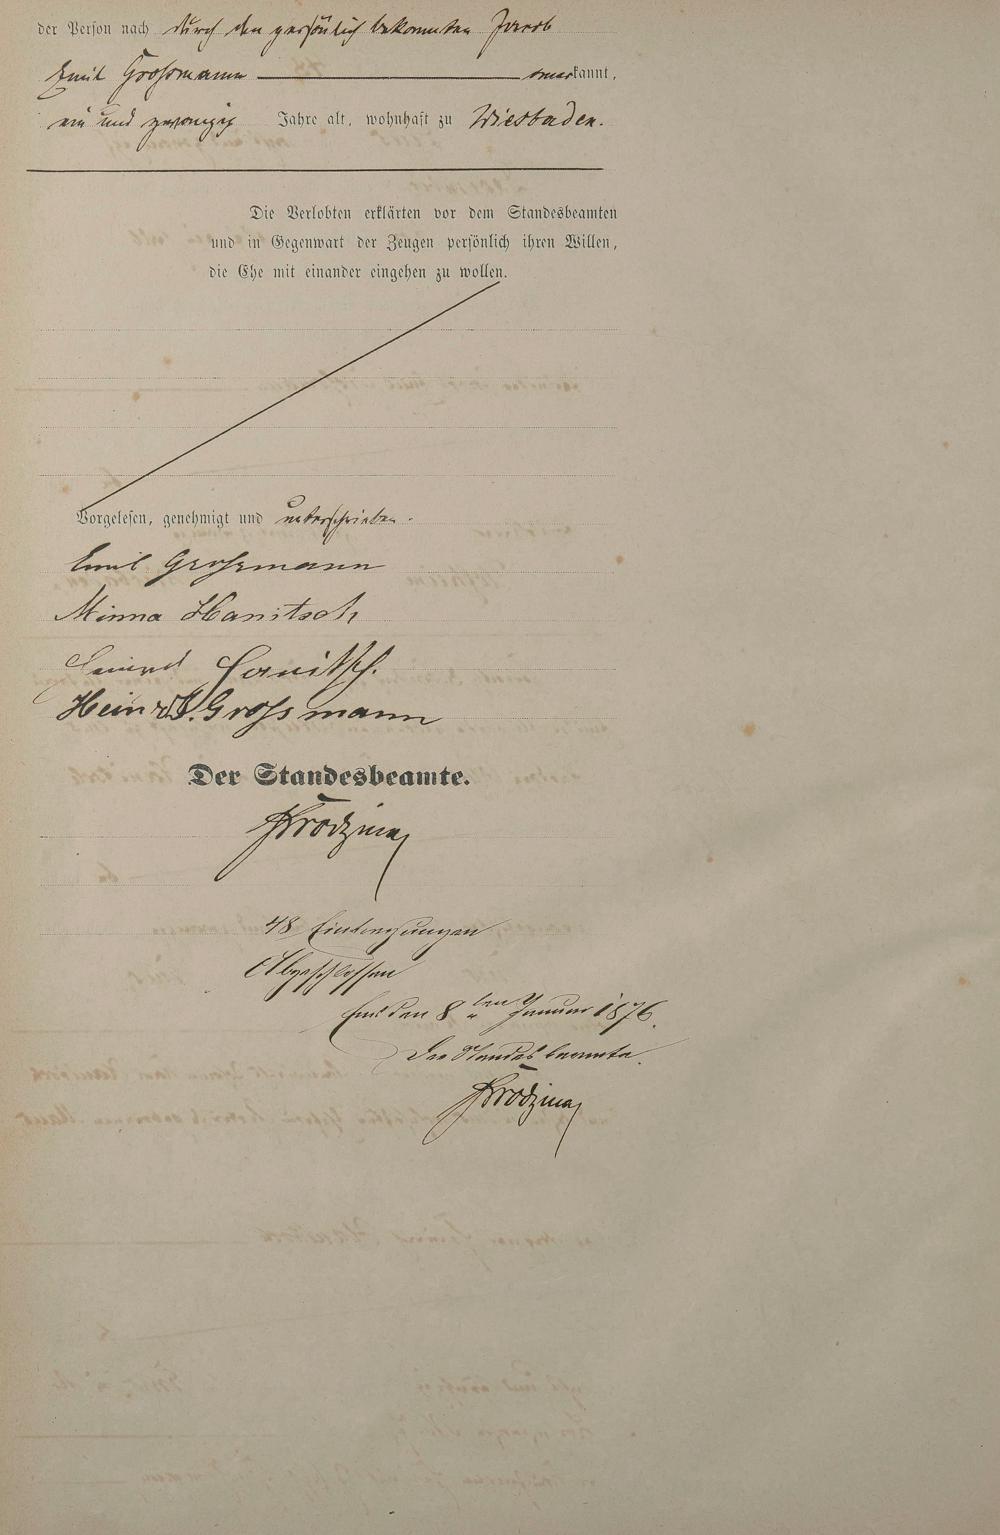 der Person nach durch den persönlich bekannten Jacob
Emil Großmann anerkannt,
ein und zwanzig Jahre alt, wohnhaft zu Wiesbaden.
Die Verlobten erklärten vor dem Standesbeamten
und in Gegenwart der Zeugen persönlich ihren Willen,
die Ehe mit einander eingehen zu wollen.
Vorgelesen, genehmigt und unterschrieben.
Emil Großmann
Minna Hanitsch
Hanitsch.
Heinr. Großmann
Der Standesbeamte.
48 Eintragungen
Abgeschlossen
Ems den 8ten Januar 1876.
Der Standesbeamte.